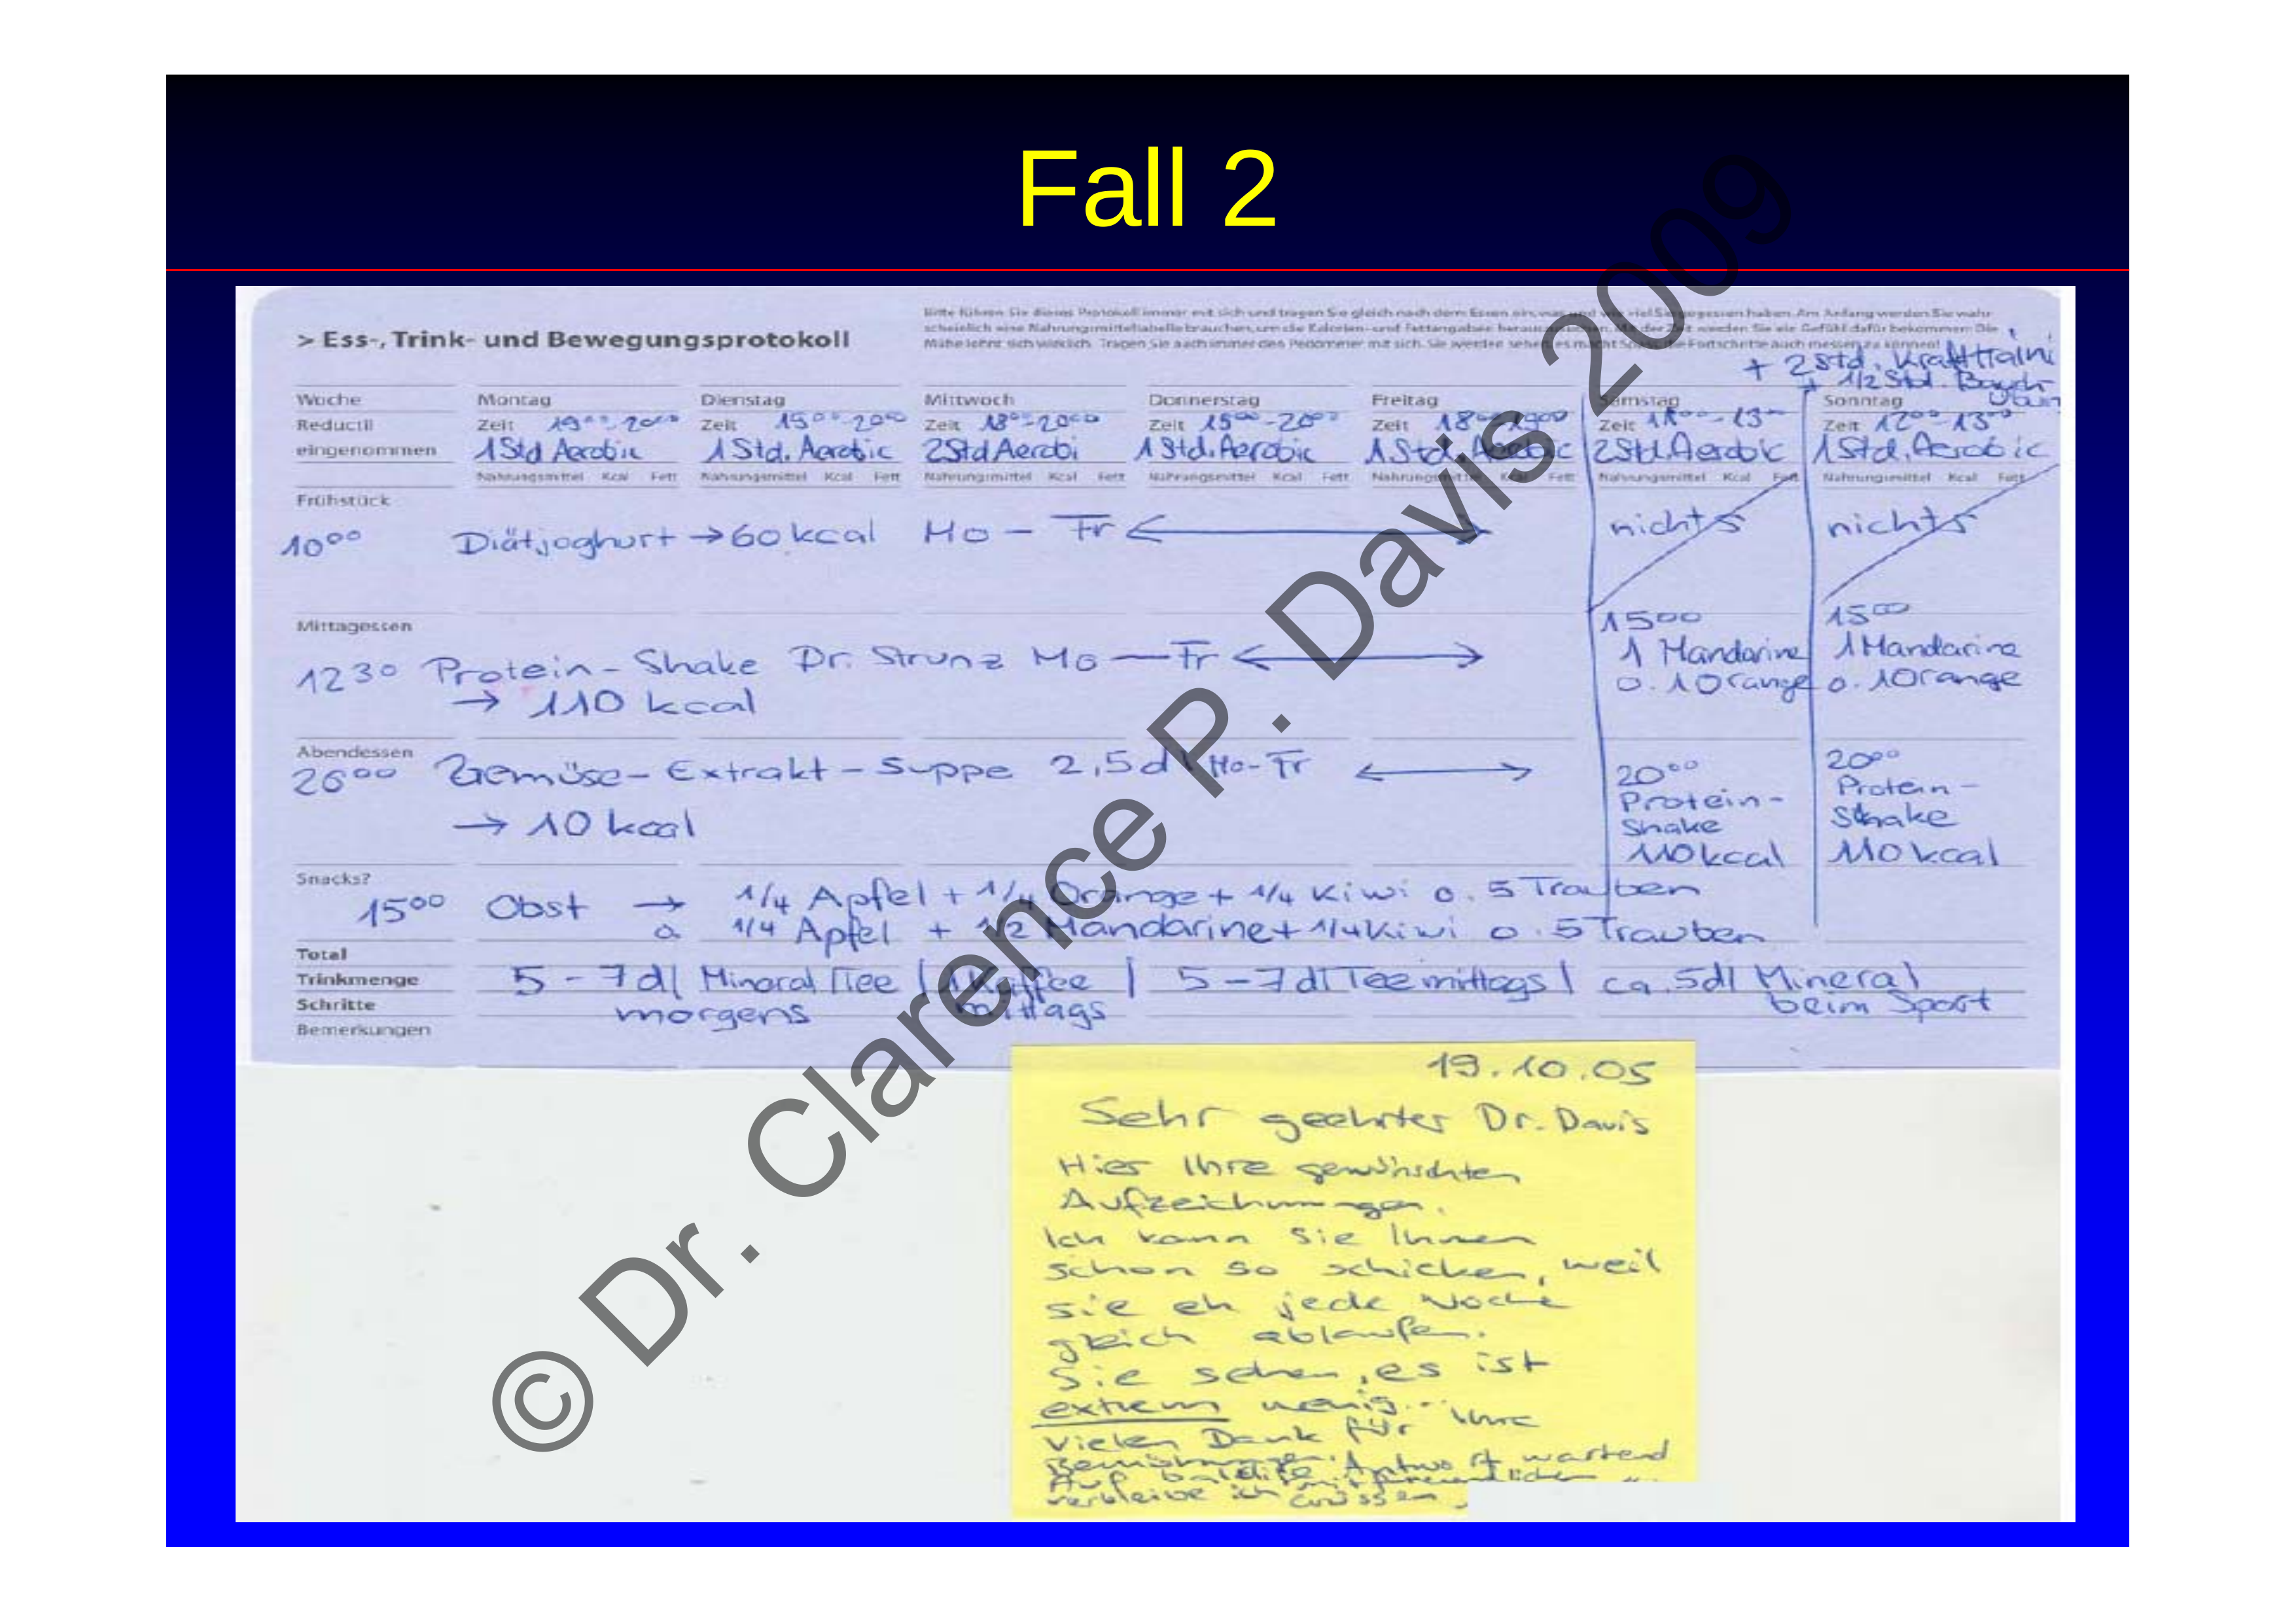 Fall 2
> Ess-, Trink- und Bewegungsprotokoll
Bitte führen Sie dieses Protokoll immer mit sich und tragen Sie gleich nach dem Essen ein, was und wie viel Sie gegessen haben. Am Anfang werden Sie wahr-
scheinlich eine Nahrungsmitteltabelle brauchen, um die Kalorien- und Fettangaben herauszusuchen. Mit der Zeit werden Sie ein Gefühl dafür bekommen. Die
Mühe lohnt sich wirklich. Tragen Sie auch immer den Pedometer mit sich. Sie werden sehen, es macht Spass, die Fortschritte auch messen zu können!
+ 2 Std. Krafttraini
+ 1/2 Std. Bauch
Woche Montag Dienstag Mittwoch Donnerstag Freitag Samstag Sonntag
Reductil Zeit 1900-2000 Zeit 1900-2000 Zeit 1800-2000 Zeit 1900-2000 Zeit 1800-1900 Zeit 1100-13 Zeit 1200-1300
eingenommen 1 Std Aerobic 1 Std. Aerobic 2 Std Aerobi 1 Std. Aerobic 1 Std. Aerobic 2 Std. Aerobic 1 Std. Aerobic
Nahrungsmittel Kcal Fett Nahrungsmittel Kcal Fett Nahrungsmittel Kcal Fett Nahrungsmittel Kcal Fett Nahrungsmittel Kcal Fett Nahrungsmittel Kcal Fett Nahrungsmittel Kcal Fett
Frühstück
1000 Diätjoghurt → 60 kcal Mo – Fr ↔ nichts nichts
Mittagessen
1230 Protein-Shake Dr. Strunz Mo — Fr ↔
→ 110 kcal
1500
1 Mandarine
o. 1 Orange
1500
1 Mandarine
o. 1 Orange
Abendessen
2000 Gemüse-Extrakt-Suppe 2,5 dl Mo-Fr ↔
→ 10 kcal
2000
Protein-
Shake
110 kcal
2000
Protein-
Shake
110 kcal
Snacks?
1500 Obst → 1/4 Apfel + 1/4 Orange + 1/4 Kiwi o. 5 Trauben
o. 1/4 Apfel + 1/2 Mandarine + 1/4 Kiwi o. 5 Trauben
Total
Trinkmenge 5 - 7 dl Mineral Tee | 1 Kaffee | 5 - 7 dl Tee mittags | ca. 5 dl Mineral
Schritte morgens mittags beim Sport
Bemerkungen
19.10.05
Sehr geehrter Dr. Davis
Hier Ihre gewünschten
Aufzeichnungen.
Ich kann Sie Ihnen
schon so schicken, weil
sie eh jede Woche
gleich ablaufen.
Sie sehen, es ist
extrem wenig...
Vielen Dank für Ihre
Bemühungen.
Auf baldige Antwort wartend
verbleibe ich mit freundlichen
Grüssen
© Dr. Clarence P. Davis 2009